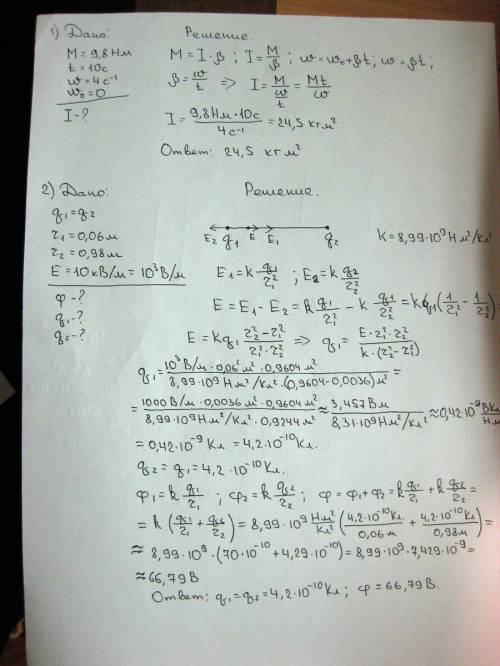 1) Дано: Решение.
M = 9,8 Нм M = I·β ; I = M/β ; ω = ω₀ + βt ; ω = βt ;
t = 10c
ω = 4 c⁻¹ β = ω/t => I = M/(ω/t) = Mt/ω
ω₀ = 0
I - ? I = 9,8 Нм · 10c / 4c⁻¹ = 24,5 кг м²
Ответ: 24,5 кг м²
2) Дано: Решение.
q₁ = q₂
r₁ = 0,06 м E₂ q₁ E E₁ q₂ K = 8,99·10⁹ Н м²/Кл²
r₂ = 0,98 м
E = 10 кВ/м = 10³ В/м E₁ = k q₁/r₁² ; E₂ = k q₂/r₂²
φ - ?
q₁ - ? E = E₁ - E₂ = k q₁/r₁² - k q₁/r₂² = k q₁ (1/r₁² - 1/r₂²)
q₂ - ? E = kq₁ (r₂² - r₁²)/(r₁² · r₂²) => q₁ = E · r₁² · r₂² / k·(r₂² - r₁²)
q₁ = 10³ В/м · 0,06² м² · 0,9604 м² / 8,99·10⁹ Н м²/Кл² · (0,9604 - 0,0036) м² =
= 1000 В/м · 0,0036 м² · 0,9604 м² / 8,99·10⁹ Н м²/Кл² · 0,9244 м² ≈ 3,457 Вм / 8,31·10⁹ Нм²/Кл² ≈ 0,42·10⁻⁹ ВКл/Нм
= 0,42·10⁻⁹ Кл = 4,2·10⁻¹⁰ Кл.
q₂ = q₁ = 4,2·10⁻¹⁰ Кл.
φ₁ = k q₁/r₁ ; φ₂ = k q₂/r₂ ; φ = φ₁ + φ₂ = k q₁/r₁ + k q₂/r₂ =
= k (q₁/r₁ + q₂/r₂) = 8,99·10⁹ Нм²/Кл² (4,2·10⁻¹⁰ Кл / 0,06 м + 4,2·10⁻¹⁰ Кл / 0,98 м) =
≈ 8,99·10⁹ · (70·10⁻¹⁰ + 4,29·10⁻¹⁰) = 8,99·10⁹ · 7,429·10⁻⁹ =
≈ 66,79 В
Ответ: q₁ = q₂ = 4,2·10⁻¹⁰ Кл ; φ = 66,79 В.